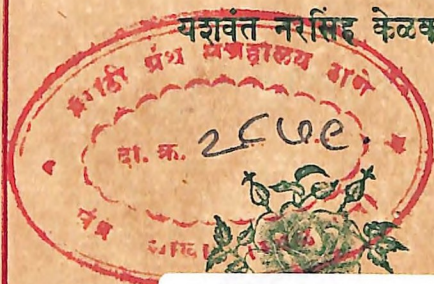 यशवंत नरसिंह केळक
मराठी ग्रंथ संग्रहालय ठाणे
दा. क्र. २८७९.